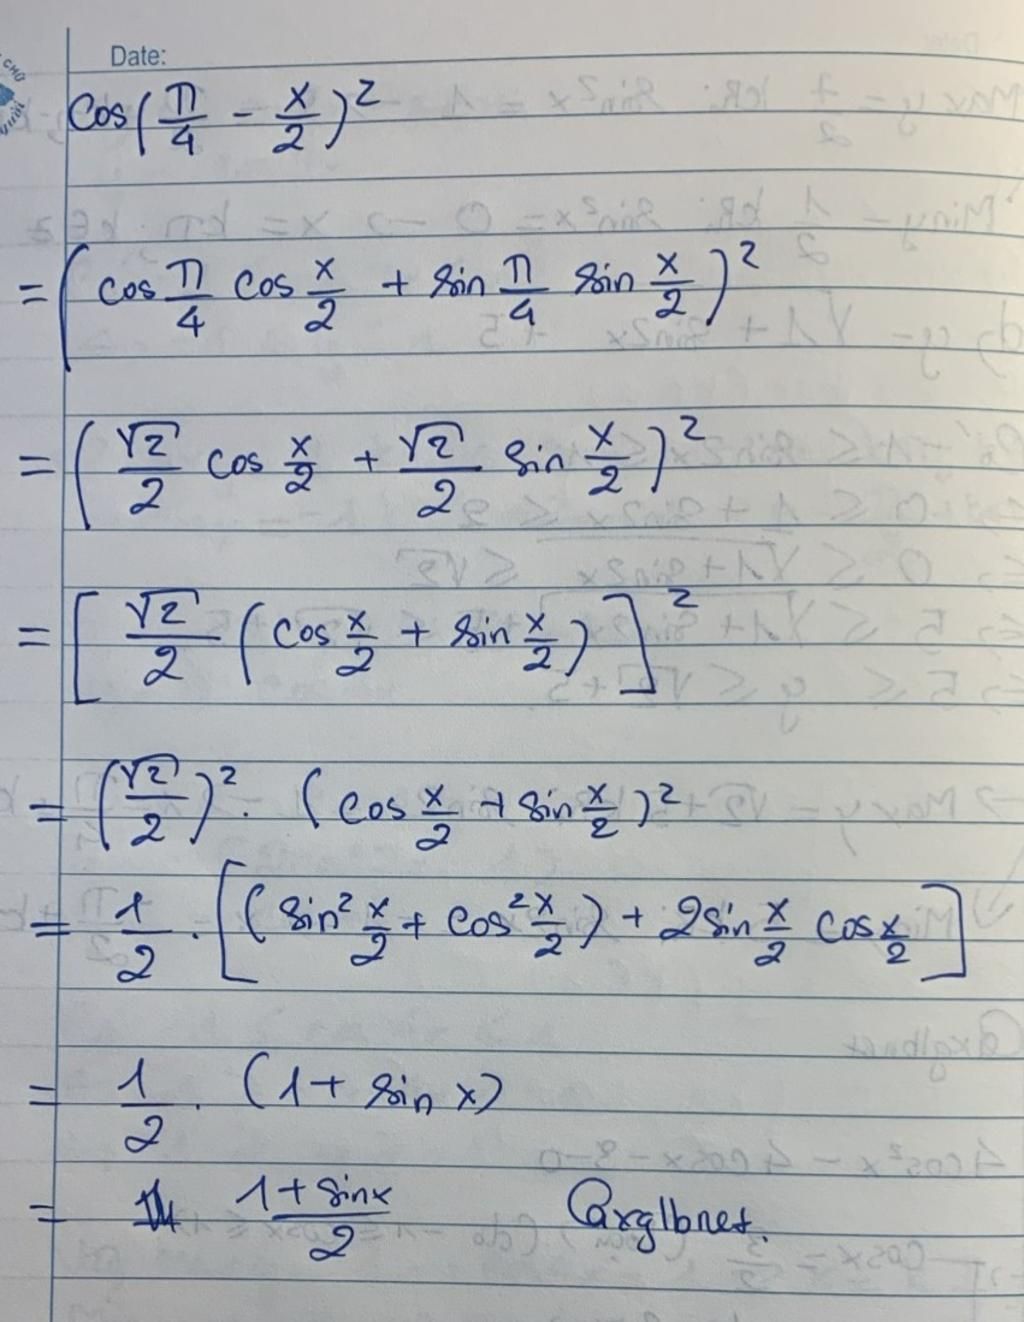 Date:
Cos(π/4 - x/2)²
= (cos π/4 cos x/2 + sin π/4 sin x/2)²
= (√2/2 cos x/2 + √2/2 sin x/2)²
= [√2/2 (cos x/2 + sin x/2)]²
= (√2/2)² . (cos x/2 + sin x/2)²
= 1/2 . [(sin² x/2 + cos² x/2) + 2sin x/2 cos x/2]
= 1/2 . (1 + sin x)
= 1+sinx/2